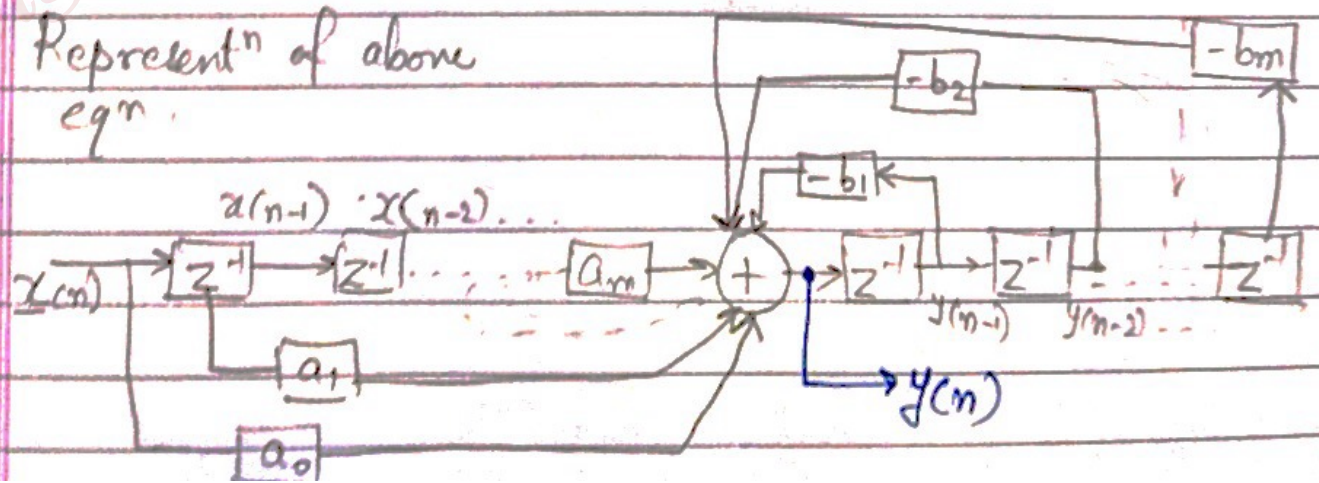 Representⁿ of above
eqⁿ.
-bm
-b₂
-b₁
x(n-1) x(n-2)...
x(n) z⁻¹ z⁻¹ ...... am + z⁻¹ z⁻¹ .... z⁻¹
y(n-1) y(n-2)...
a₁
y(n)
a₀